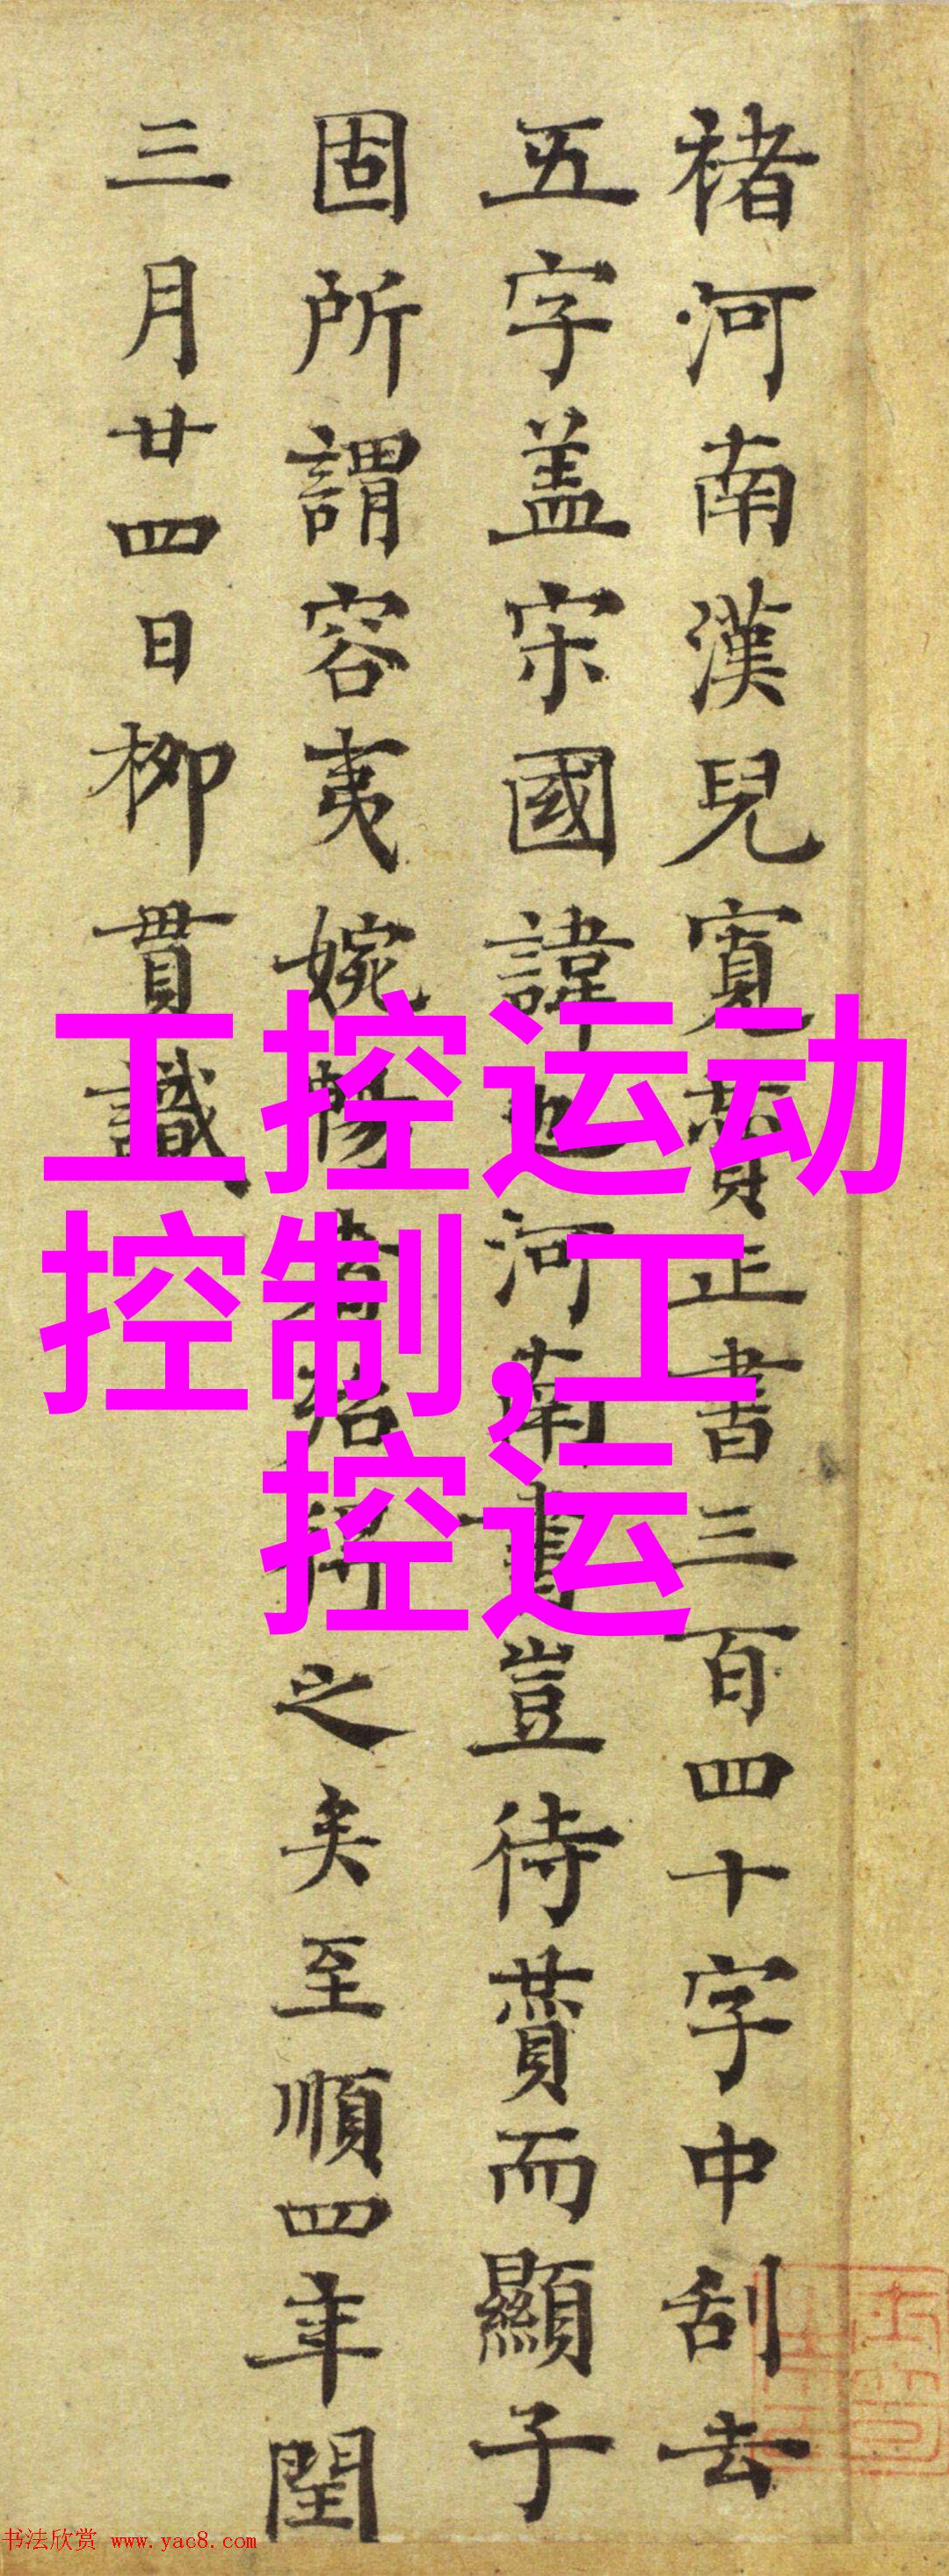 褚河南漢兒寬賛正書三百四十字中刮去
五字盖宋國諱也河南書豈待賛而顯子
固所謂容夷婉暢者殆得之矣至順四年閏
三月廿四日柳貫識
工控运动
控制,工
控运
书法欣赏 www.yac8.com